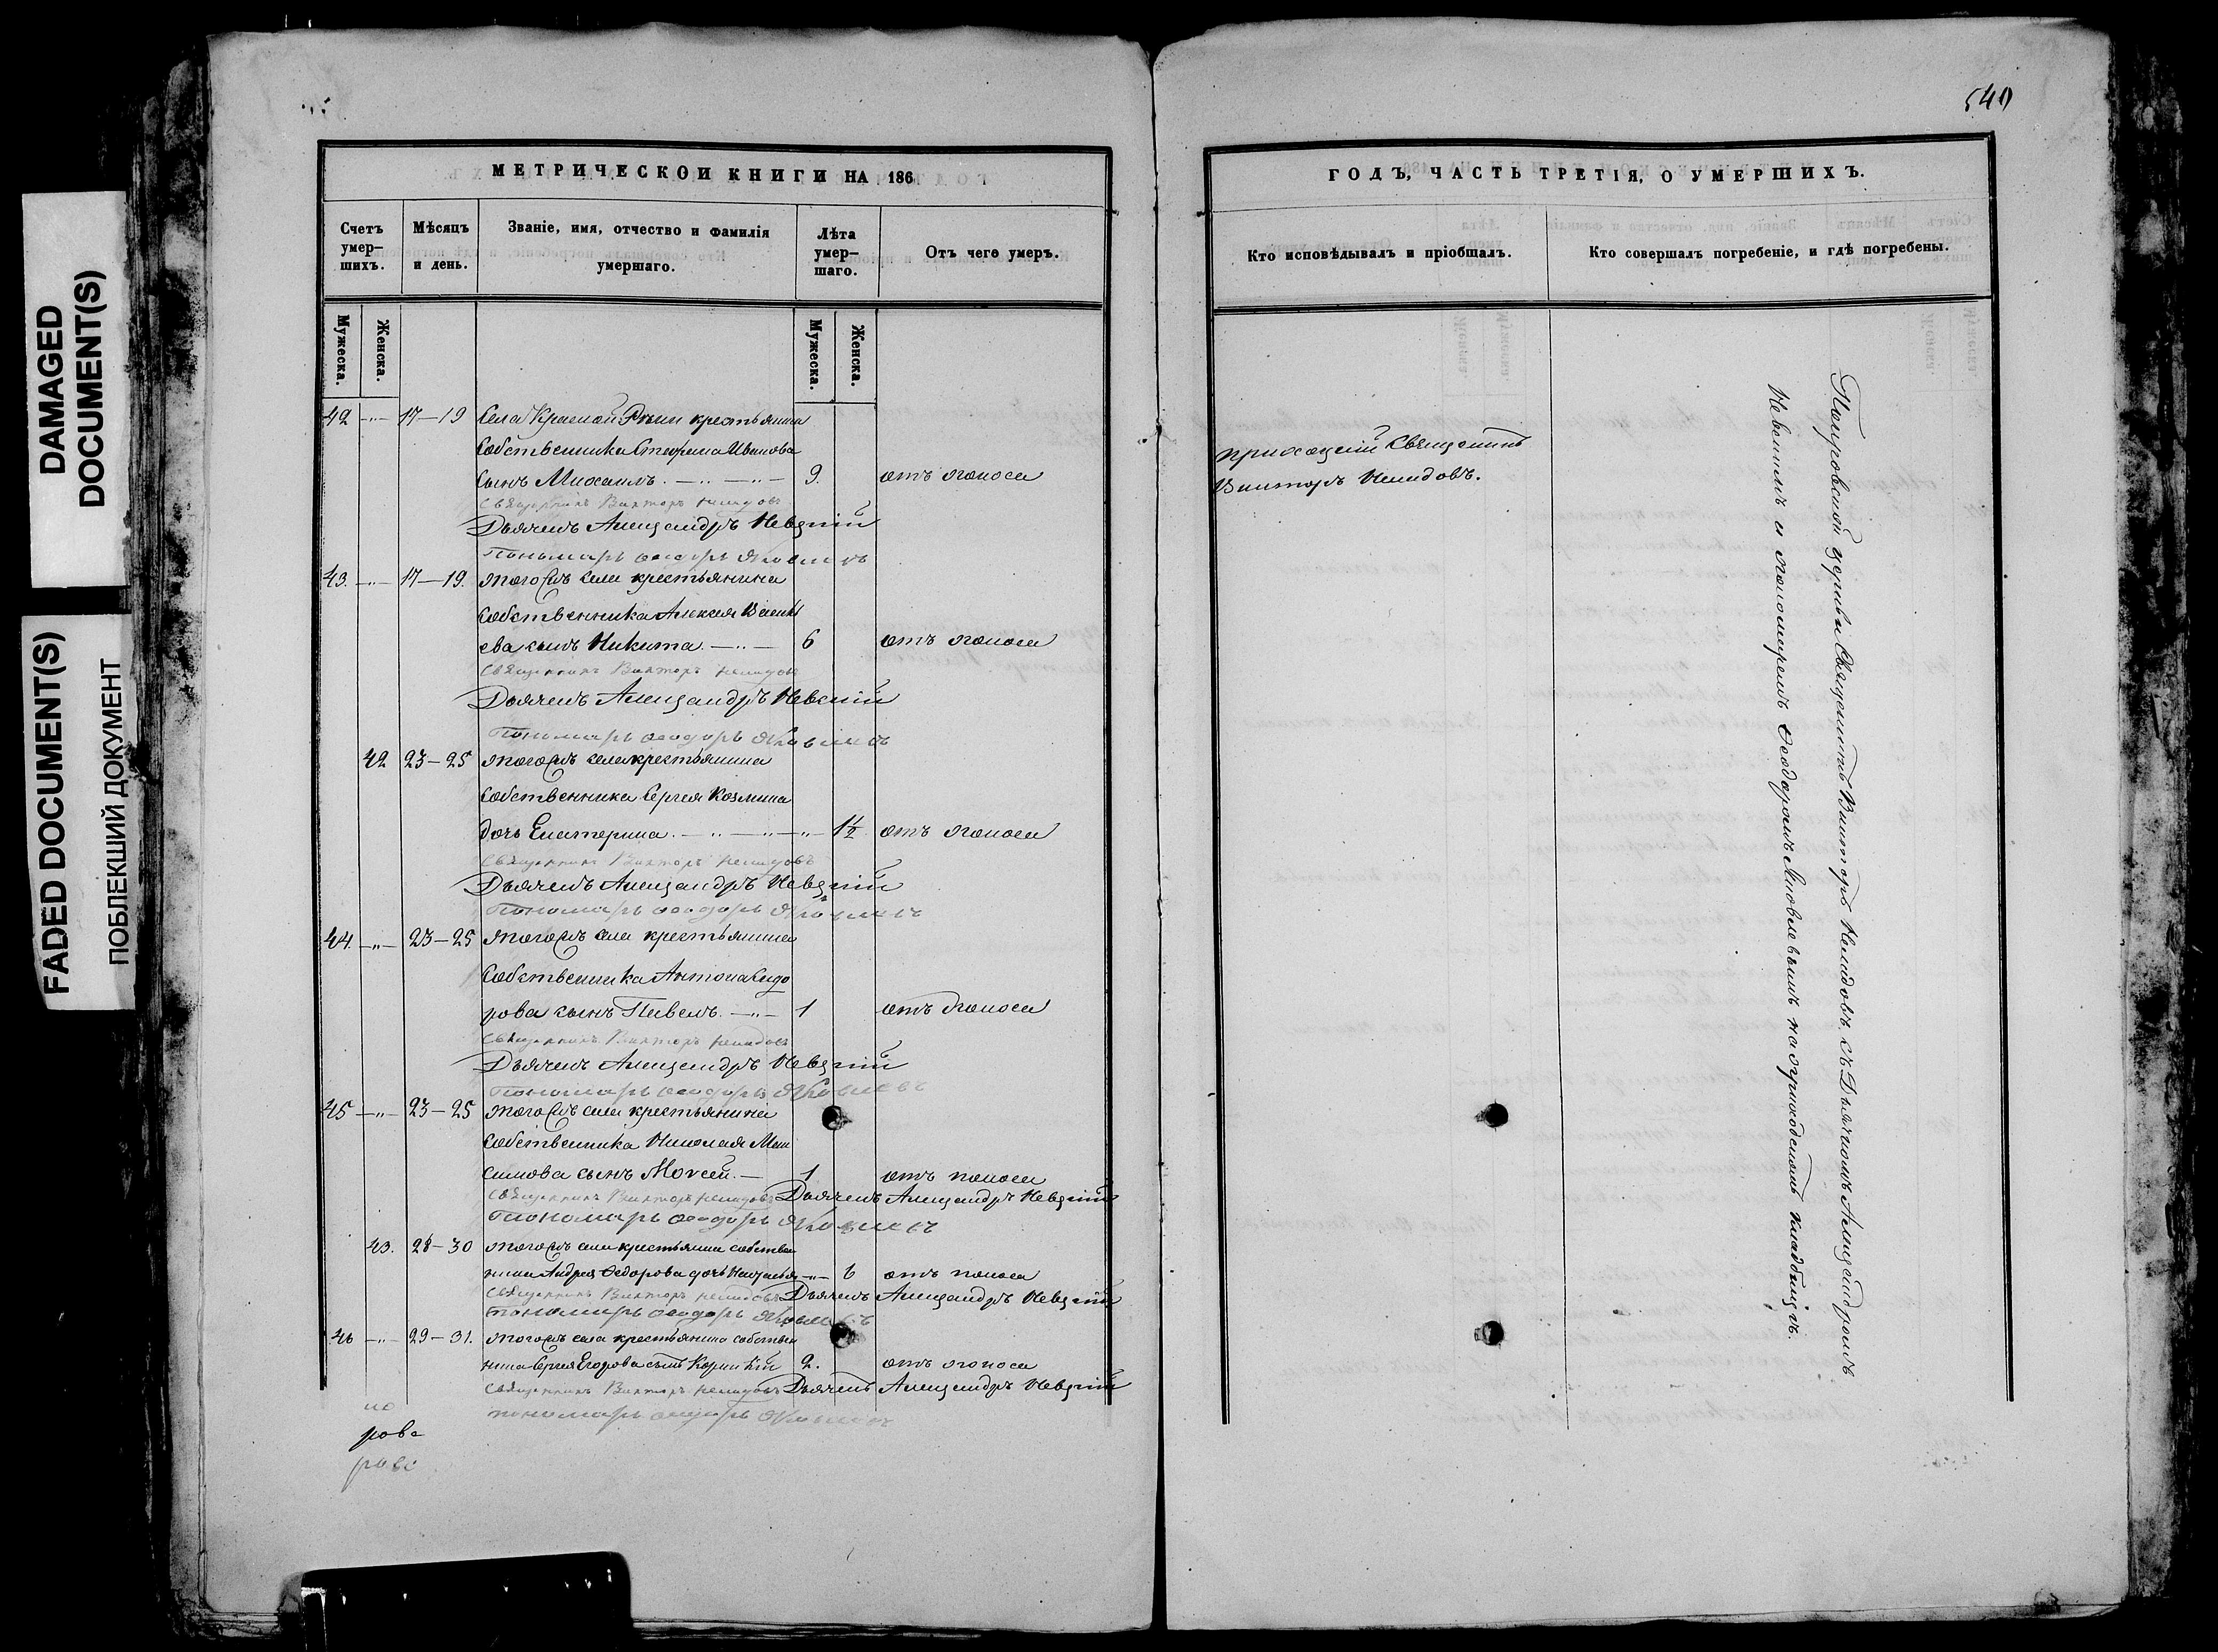 DAMAGED
DOCUMENT(S)
FADED DOCUMENT(S)
ПОБЛЕКШИЙ ДОКУМЕНТ
МЕТРИЧЕСКОЙ КНИГИ НА 186
Счетъ умер-шихъ.
Мѣсяцъ и день.
Званіе, имя, отчество и фамилія умершаго.
Лѣта умер-шаго.
Отъ чего умеръ.
Мужеска. Женска. Мужеска. Женска.
42 —"— 17—19 Села Красной Рѣки крестьянина
Собственника Стефана Иванова
сынъ Михаилъ. —..— —"— 9. отъ поноса
Священникъ Викторъ Нелидовъ
Дьячекъ Александръ Невскій
Пономарь Ѳеодоръ Яковлевъ
43. —"— 17—19. тогожъ села крестьянина
собственника Алексея Василь
ева сынъ Никита. —..— 6 отъ поноса
Священникъ Викторъ Нелидовъ
Дьячекъ Александръ Невскій
Пономарь Ѳеодоръ Яковлевъ
42 23—25 тогожъ села крестьянина
Собственника Сергея Козмина
дочь Екатерина. —..— —"— 1½ отъ поноса
Священникъ Викторъ Нелидовъ
Дьячекъ Александръ Невскій
Пономарь Ѳеодоръ Яковлевъ
44. —"— 23—25 тогожъ села крестьянина
Собственника Антона Сидо
рова сынъ Павелъ. —"— 1 отъ поноса
Священникъ Викторъ Нелидовъ
Дьячекъ Александръ Невскій
Пономарь Ѳеодоръ Яковлевъ
45 —"— 23—25 тогожъ села крестьянина
Собственника Николая Мак
симова сынъ Моѵсей. — 1 отъ поноса
Священникъ Викторъ Нелидовъ Дьячекъ Александръ Невскій
Пономарь Ѳеодоръ Яковлевъ
43. 28—30 тогожъ села крестьянина собствен
ника Андрея Федорова дочь Наталья —"— 6 отъ поноса
Священникъ Викторъ Нелидовъ Дьячекъ Александръ Невскій
Пономарь Ѳеодоръ Яковлевъ
46 —"— 29—31. тогожъ села крестьянина собствен
ника Сергея Егорова сынъ 2. отъ поноса
Священникъ Викторъ Нелидовъ Дьячекъ Александръ Невскій
Пономарь Ѳеодоръ Яковлевъ
по
рова
рова
ГОДЪ, ЧАСТЬ ТРЕТІЯ, О УМЕРШИХЪ.
Кто исповѣдывалъ и пріобщалъ.
Кто совершалъ погребеніе, и гдѣ погребены.
приходскій Священникъ
Викторъ Нелидовъ.
Покровской церкви Священникъ Викторъ Нелидовъ съ Дьячкомъ Александромъ
Невскимъ и пономаремъ Ѳеодоромъ Яковлевымъ на приходскомъ кладбищѣ.